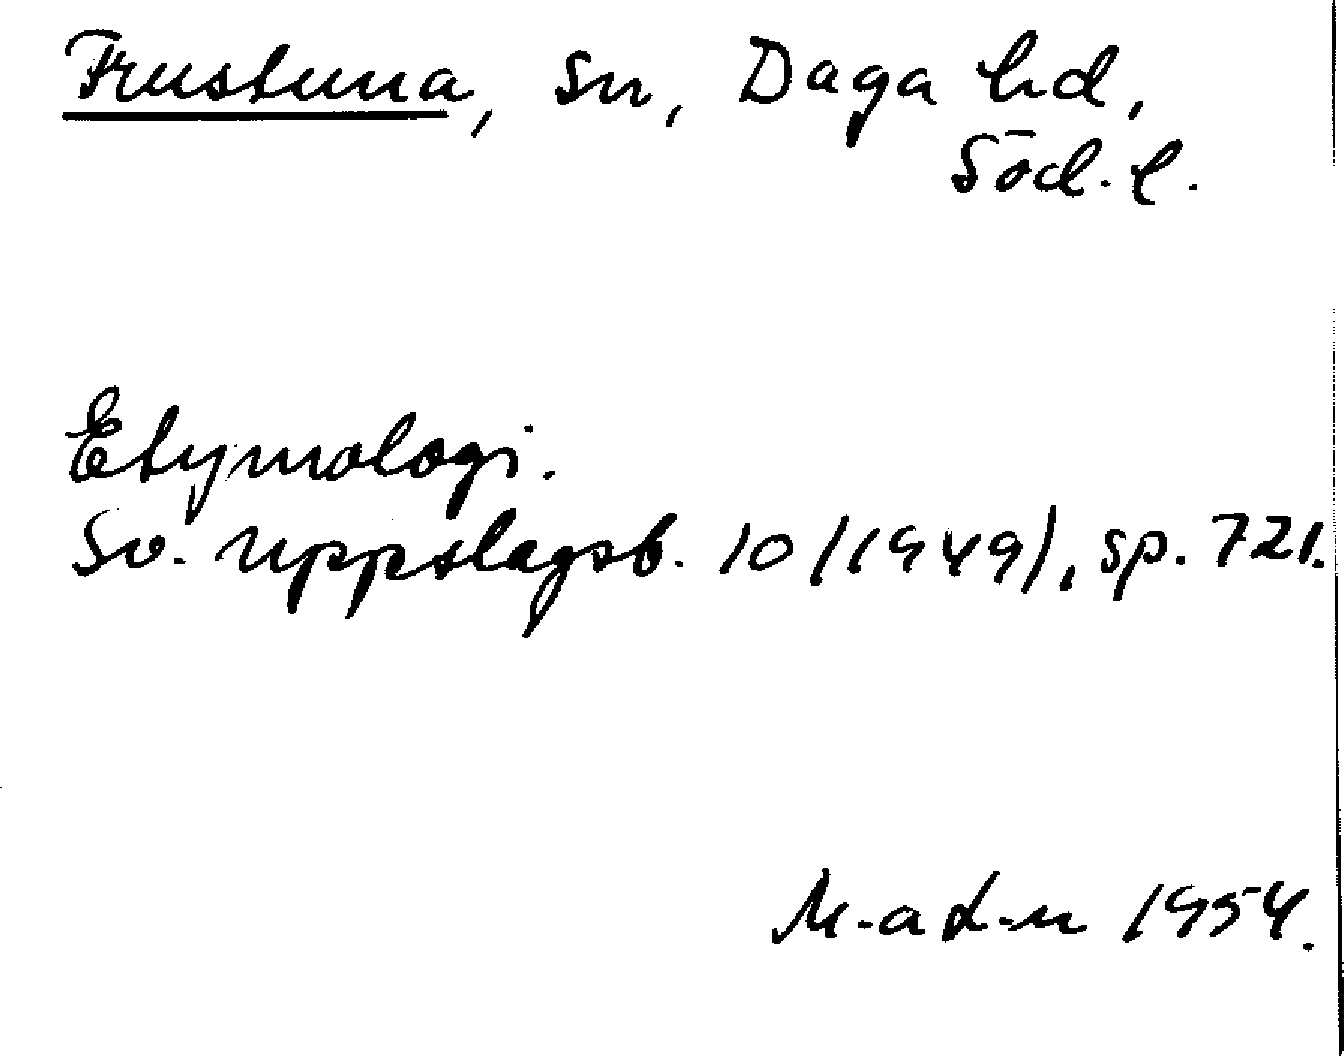 Frustuna, Sn, Daga hd,
Söd. l.
Etymologi.
Sv. uppslagsb. 10 (1949), sp. 721.
M-a L-n 1954.